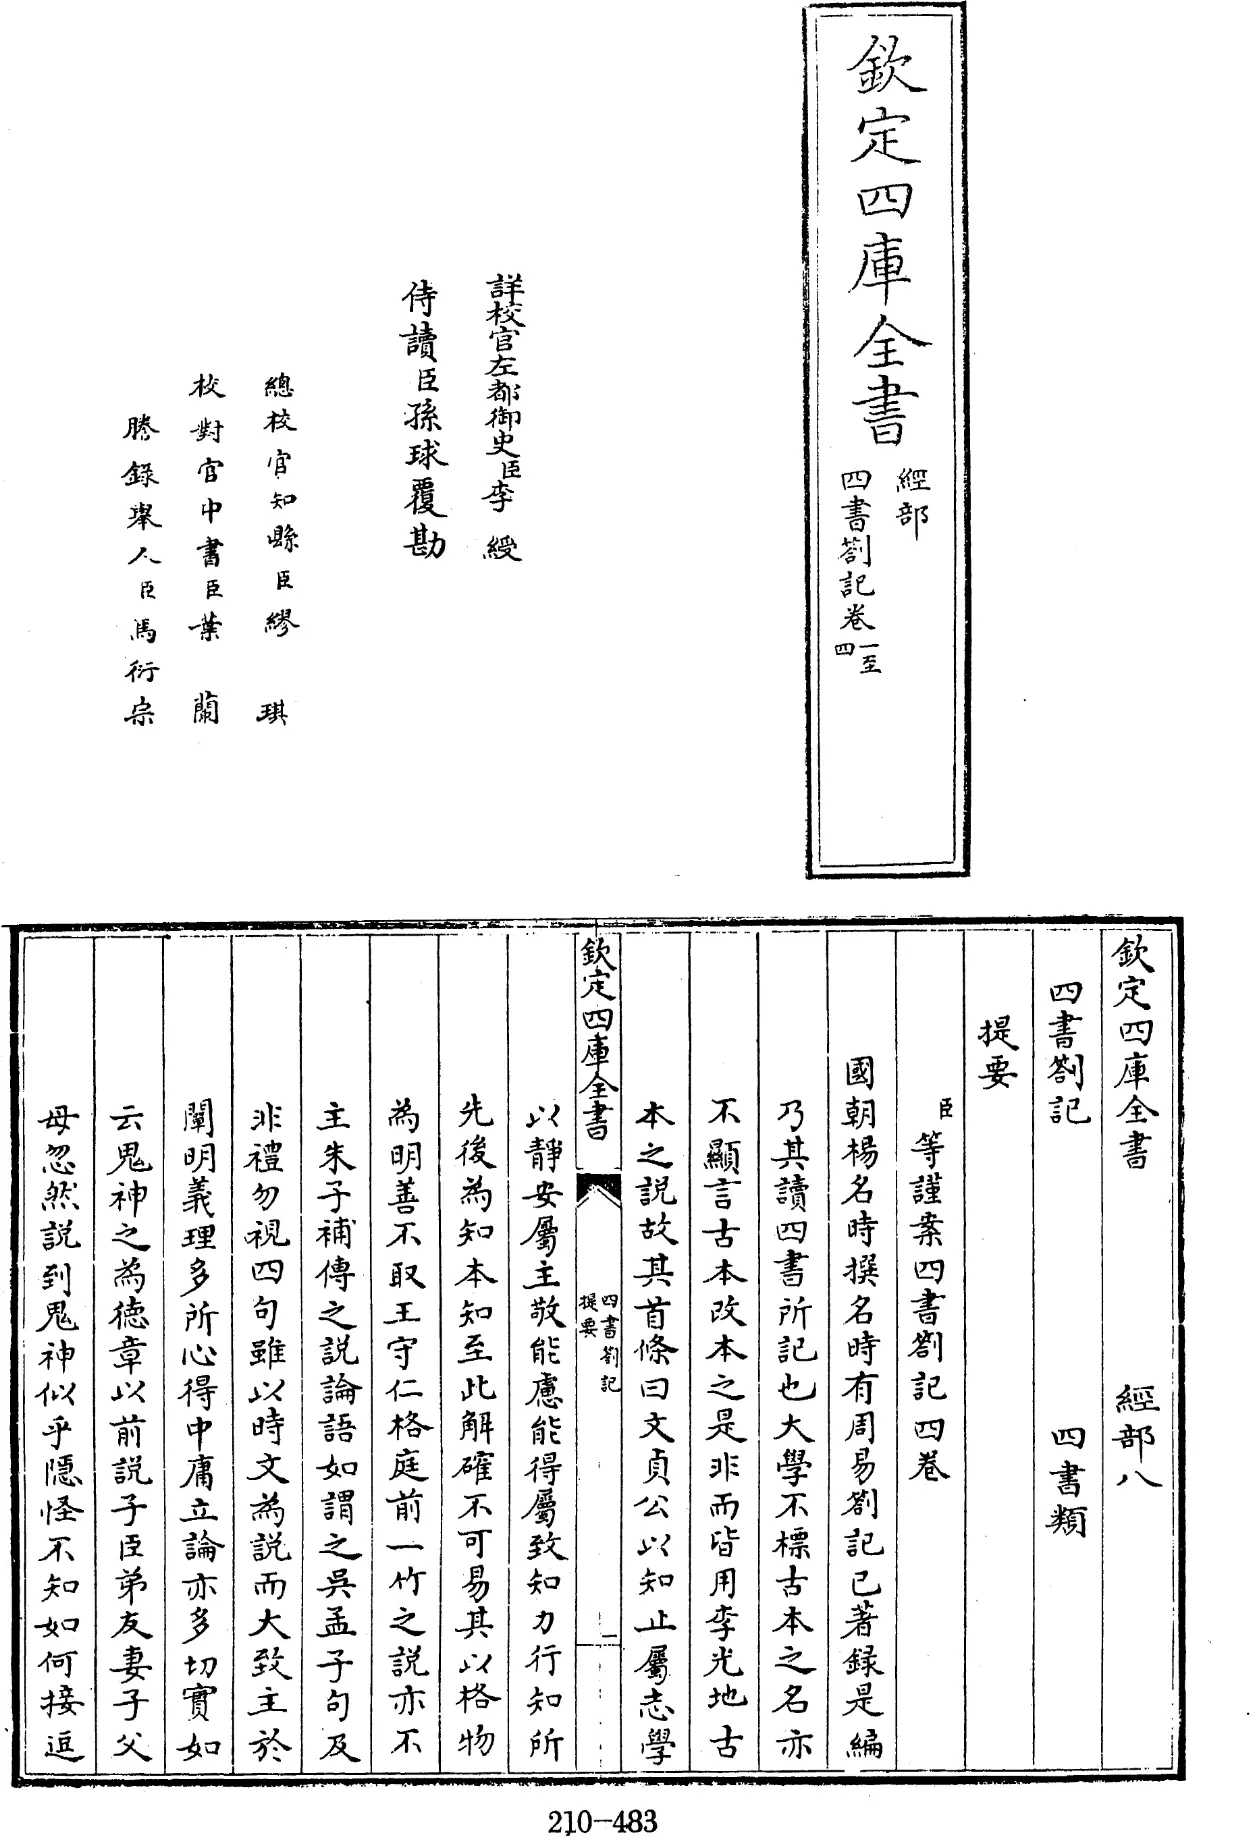 欽定四庫全書
經部
四書劄記卷一至四
詳校官左都御史臣李綬
侍讀臣孫球覆勘
總校官知縣臣繆琪
校對官中書臣葉蘭
謄錄舉人臣馬衍宗
欽定四庫全書 經部八
四書劄記 四書類
提要
臣等謹案四書劄記四卷
國朝楊名時撰名時有周易劄記已著録是編
乃其讀四書所記也大學不標古本之名亦
不顯言古本改本之是非而皆用李光地古
本之説故其首條曰文貞公以知止屬志學
欽定四庫全書
四書劄記
提要
一
以靜安屬主敬能慮能得屬致知力行知所
先後為知本知至此解確不可易其以格物
為明善不取王守仁格庭前一竹之説亦不
主朱子補傳之説論語如謂之吳孟子句及
非禮勿視四句雖以時文為説而大致主於
闡明義理多所心得中庸立論亦多切實如
云鬼神之為德章以前説子臣弟友妻子父
母忽然説到鬼神似乎隱怪不知如何接逗
210-483